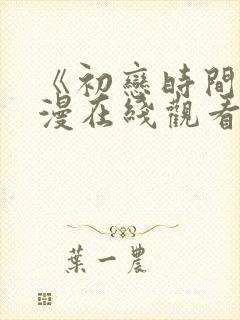 《初戀時間
漫在綫觀看
葉一農